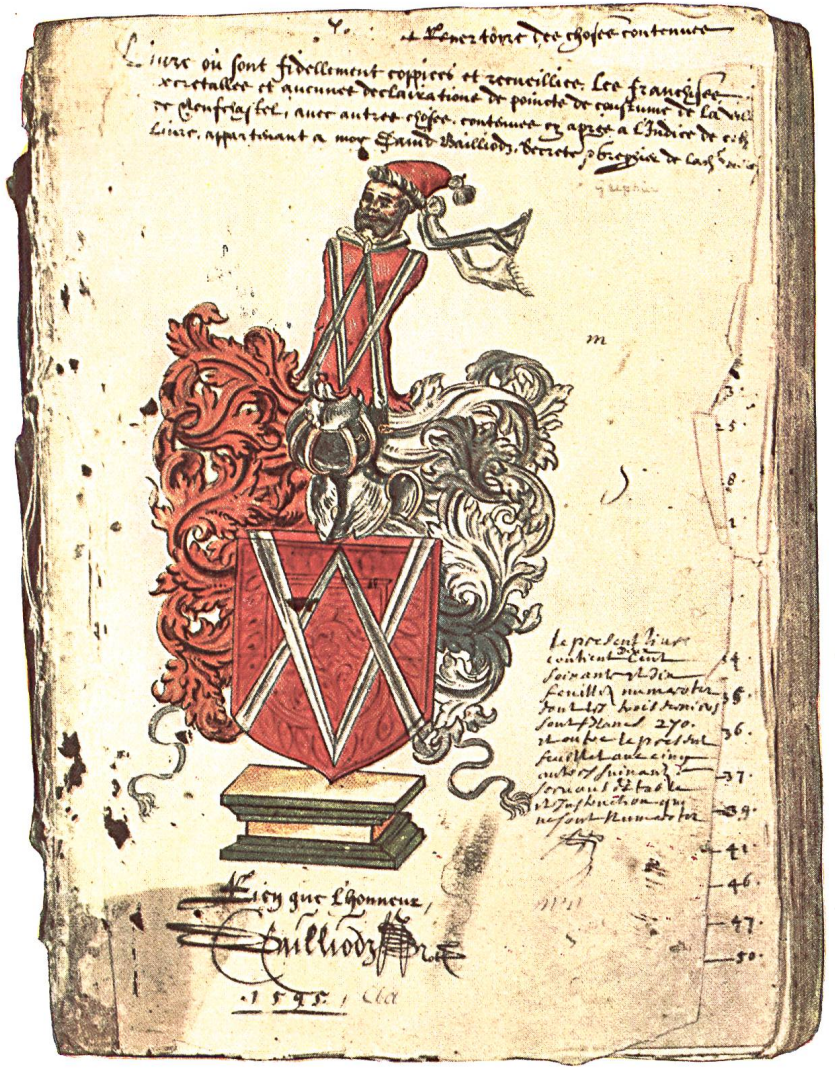 et Repertoire des choses contenues
Livre où sont fidellement coppiees et recueillies. Les franchises
decretallee et aucunes declairations de poincts de coustume de la ville
de Neufchastel, avec autres choses contenues cy apres a l'Indice de
Livre, appartenant a moy David Bailliodz, Secrete
m
3.
25.
8
1
le present livre
contient Cent
soixante et dix
feuillez numerotez
dont les trois derniers
sont blancs 270.
et outre le present
feuillet avec cinq
autres suivans
servant de table
et Instruction qui
ne sont Numerotez
34.
35.
36.
37.
39.
41
46.
47.
50.
Rien que l'honneur,
Bailliodz
1595.